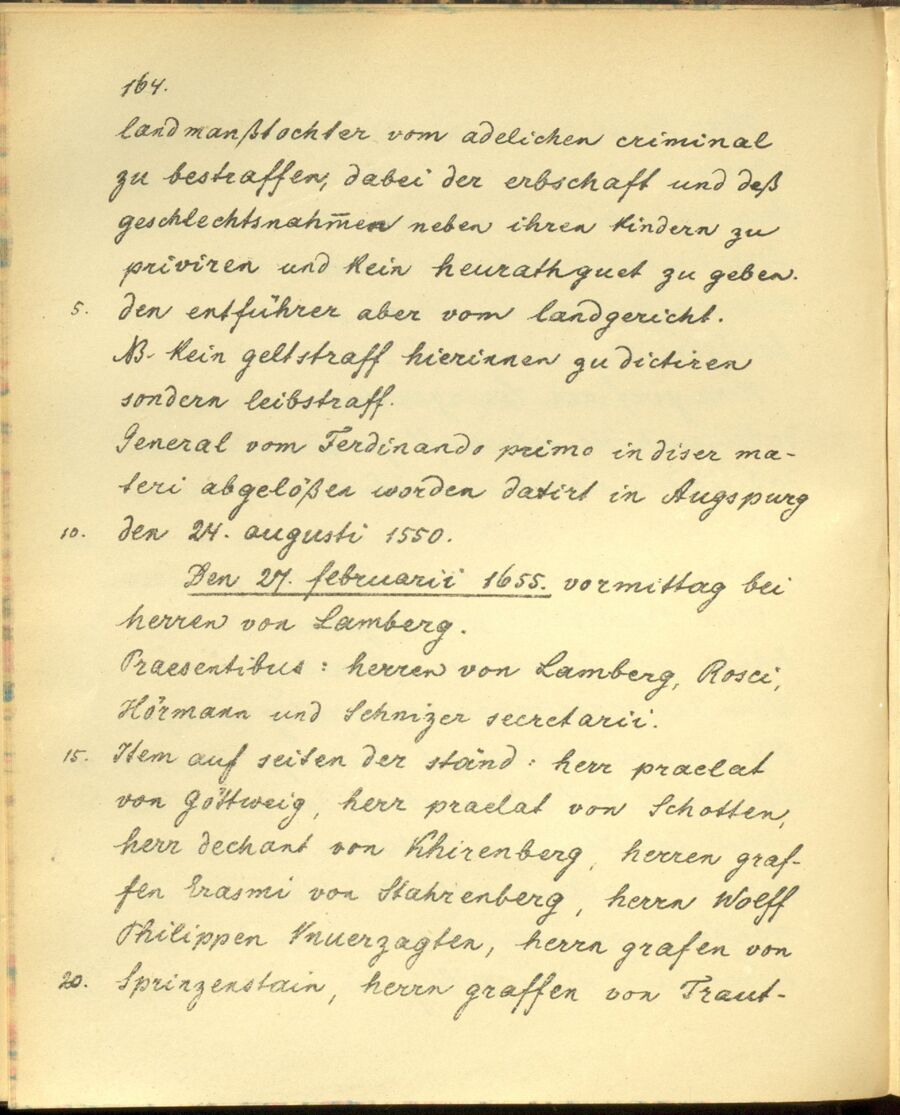 164.
landmanßtochter vom adelichen criminal
zu bestraffen, dabei der erbschaft und deß
geschlechtsnahm̅en neben ihren kindern zu
priviren und kein heurathguet zu geben.
5. den entführer aber vom landgericht.
NB. kein geltstraff hierinnen zu dictiren
sondern leibstraff.
General vom Ferdinando primo in diser ma-
teri abgelößen worden datirt in Augspurg
10. den 24. augusti 1550.
Den 27. februarii 1655. vormittag bei
herren von Lamberg.
Praesentibus: herren von Lamberg, Rosci,
Hörmann und Schnizer secretarii.
15. Item auf seiten der ständ: herr praelat
von Göttweig, herr praelat von Schotten,
herr dechant von Khirenberg, herren graf-
fen Erasmi von Stahrenberg, herrn Wolff
Philippen Unverzagten, herrn grafen von
20. Sprinzenstain, herrn graffen von Traut-